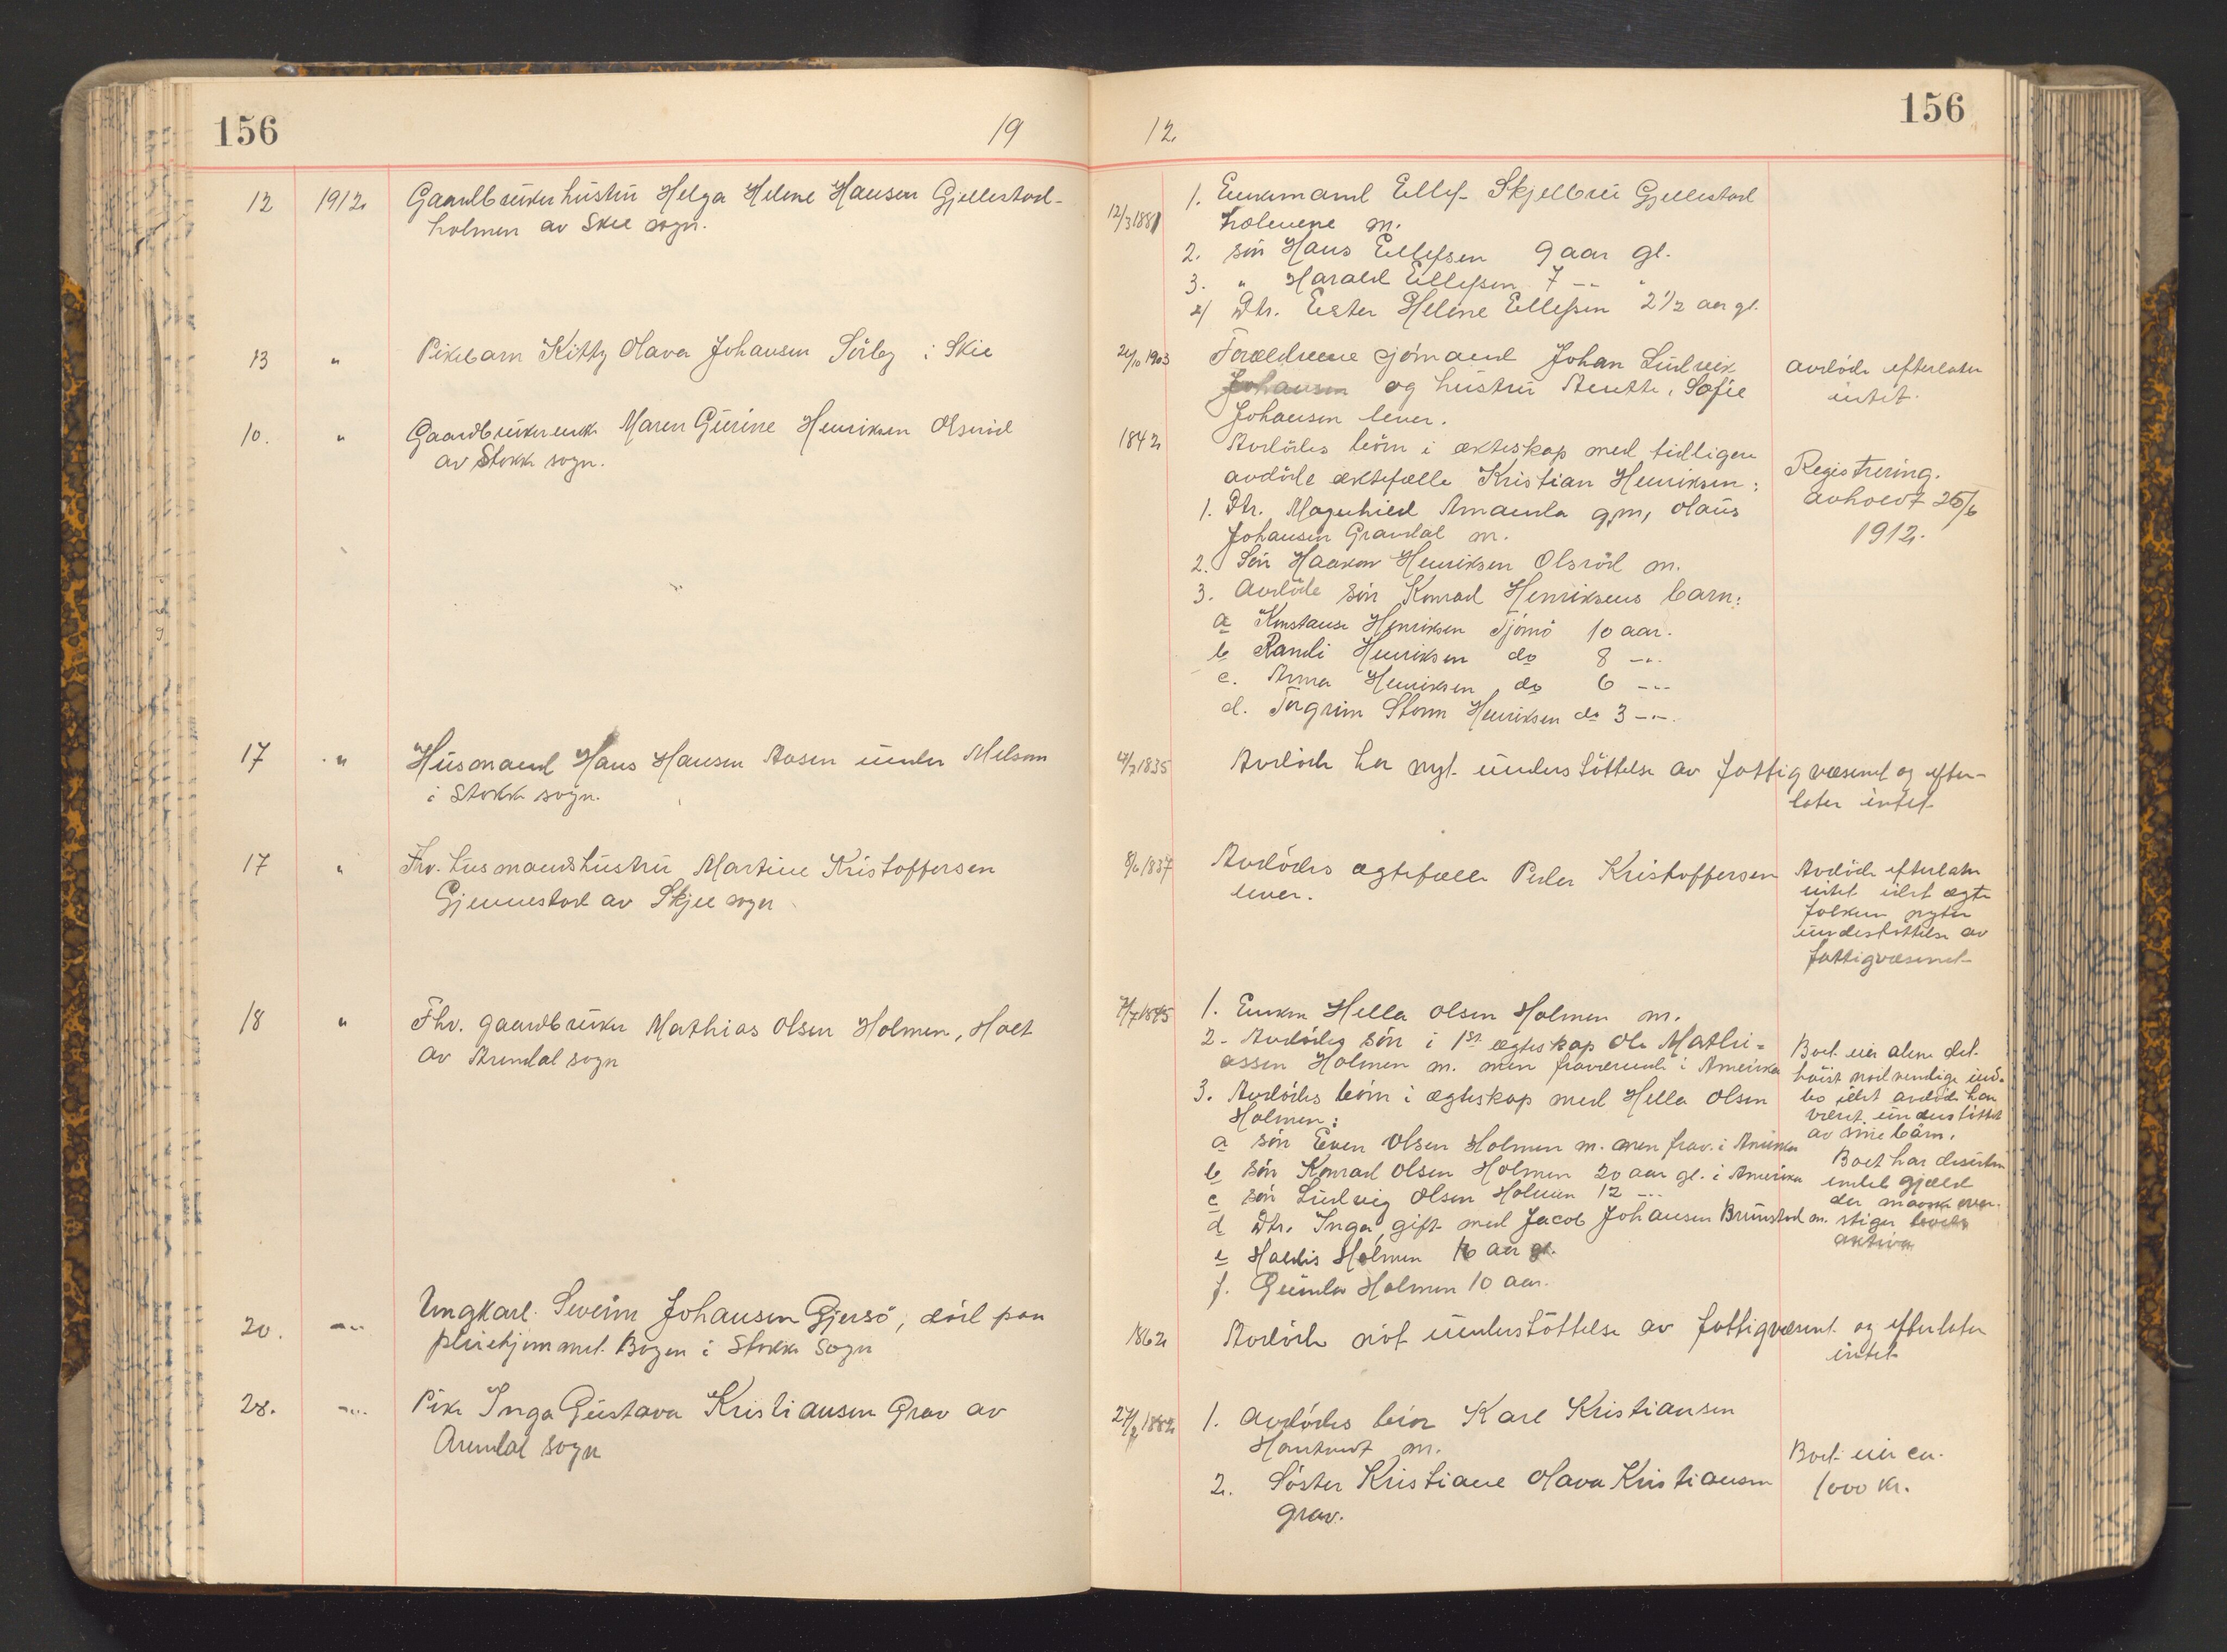 156
19
12
156
12 1912 Gaardbrukerhustru Helga Helene Hansen Gjellestad-
holmen av Skee sogn.
12/3 1881 1. Enkemand Ellef Skjelbrei Gjellestad
holmene m.
2. søn Hans Ellefsen 9 aar gl.
3. " Harald Ellefsen 7 -- "
4) Dtr. Ester Helene Ellefsen 2 1/2 aar gl.
13 " Pikebarn Kitty Olava Johansen Sörby i Skee
1903 Forældrene sjömand Johan Ludvik
Johansen og hustru Sofie
Johansen lever.
Avdöde efterlater
intet.
10. " Gaardbrukerenke Maren Gurine Henriksen Olsröd
av Stokke sogn.
1842 Avdödes börn i ekteskap med tidligere
avdöde ektefælle Kristian Henriksen:
1. Dtr. Magnhild Amanda g.m. Olaus
Johansen Grandal m.
2. Søn Haakon Henriksen Olsröd m.
3. Avdöde sön Konrad Henriksens barn:
a Konstanse Henriksen Tjömö 10 aar.
b Randi Henriksen do 8 -"-
c. Anna Henriksen do 6 -"-
d. Torgrim Storm Henriksen do 3 -"-
Registrering.
avholdt 25/6
1912.
17 " Husmand Hans Hansen Aasen under Melsom
i Stokke sogn.
1835 Avdöde har nyt understöttelse av fattigvæsenet og efter-
later intet
17 " Fhv. husmandshustru Martine Kristoffersen
Gjennestad av Skjee sogn
8/6 1837 Avdödes ægtefælle Peder Kristoffersen
lever.
Avdöde efterlater
intet idet ægte
folkene nyter
understöttelse av
fattigvæsenet
18 " Fhv. gaardbruker Mathias Olsen Holmen, Holt
av Arendal sogn
7/7 1845 1. Enken Hella Olsen Holmen m.
2. Avdödes søn i 1st ægteskap Ole Mathi-
assen Holmen m. men fraværende i Amerika
3. Avdödes börn i ægteskap med Hella Olsen
Holmen:
a søn Even Olsen Holmen m. men frav. i Amerika
b søn Konrad Olsen Holmen 20 aar gl. i Amerika
c søn Ludvig Olsen Holmen 12 -"-
d Dtr. Inga gift med Jacob Johansen Brunstad m.
e Haldis Holmen 16 aar gl.
f. Gunda Holmen 10 aar.
Boet eier alene det
höist nødvendige ind-
bo idet avdöde har
været understöttet
av sine börn.
Boet har desuten
endel gjæld
der maaske over-
stiger boets
aktiva
20. -"- Ungkarl Severin Johansen Gjersö, död paa
pleiehjemmet Bogen i Stokke Sogn
1862 Avdöde nöt understöttelse av fattigvæsenet og efterlater
intet
28. -"- Pike Inga Gustava Kristiansen Grav av
Arendal sogn
1882 1. Avdödes bror Karl Kristiansen
m.
2. Söster Kristiane Olava Kristiansen
Grav.
Boet eier ca.
1000 kr.